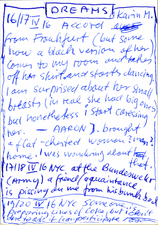 DREAMS
16/17 IV 16 ACCORD Karin M.
from Frankfurt (but some
how a black version of her
comes to my room and takes
off her shirt and starts dancing
I am surprised about her small
breasts (in real she had big ones)
but nonetheless I start caressing
her. — AARON) brought
a flat-chested woman
home. I was wondering about that
17/18 IV 16 NYC, at the Bundeswehr
(Army) a friend/aquaintance
is pissing on me from his bunk bed
19/20 IV 16 NYC Someone is
preparing lines of Coke, but I